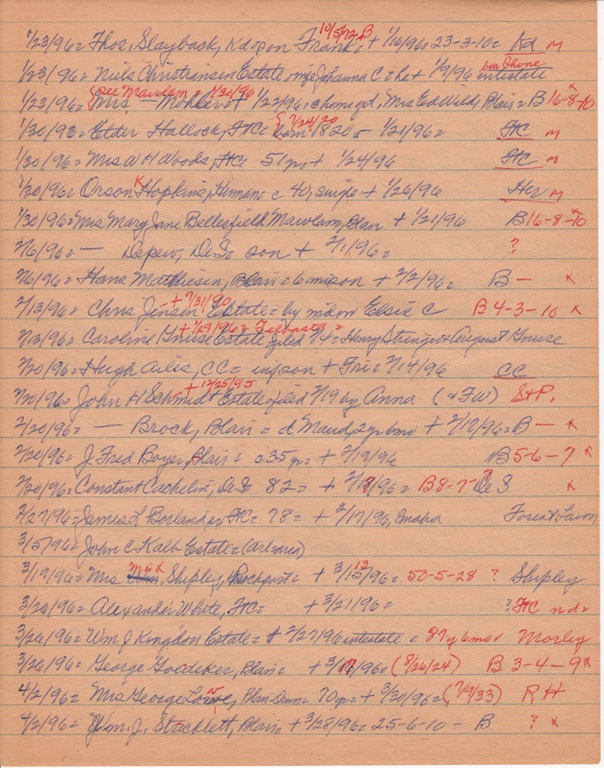 10/5/72 B
1/23/96= Thos. Slayback, Kd = son Frank, + 1/16/96= 23-3-10= Kd m
bur Shone
1/23/96= Niels Christensen Estate = wife Johanna C = he + 1/9/96 intestate
{see Mawlam 1/30/96}
1/23/96= Mrs — Mohler + 1/22/96, c home gd, Mrs Ed Wild, Blair = B 16-8-10 x
{7/24/20
1/30/96= Elder Hallock, HC= born 1820 = 1/21/96= HC m
1/30/96= Mrs W H Woods, HC= 51 yr = + 1/24/96 HC m
1/30/96= Orson K Hopkins, Herman c 40, single + 1/26/96 Her m
1/30/96= Mrs Mary Jane Bellesfield Mawlam, Blair + 1/21/96 B 16-8-10 x
2/6/96= — Depew, DeS= son + 2/1/96= ?
2/6/96= Hans Mathiesen, Blair = 6 mi son + 2/2/96= B — x
+ 7/31/90
2/13/96= Chris Jensen Estate = by widow Elsie C B 4-3-10 x
+ 1/29/96= Tekamah =
2/13/96= Caroline Gruse Estate filed 2/4= Henry Stringer & August Gruse
2/20/96= Hugh Ailes, CC = inf son + Fri = 2/14/96 CC
+ 12/25/95
2/20/96= John H Schmidt Estate = filed 2/19 by Anna (& FW) S & P.
2/20/96= — Brock, Blair = d Maud, 2 yr 6 mo + 2/12/96= B — x
2/20/96= J. Fred Boyer, Blair = c 35 yr = + 2/19/96 B 5-6-7 x
2/20/96= Constant Cachelin, DeS 82 = + 2/18/96= B8-7-7 DeS x
2/27/96= James L Borlander, HC= 78 = + 2/17/96, Omaha
3/5/96= John C Kalb Estate =
3/19/96= Mrs M & H Shipley, Rockport = + 3/12/96= 50-5-28 ? Shipley
3/26/96= Alexander White, HC= + 3/21/96= ? HC n.d.
3/26/96= Wm J Kingdon Estate = + 2/27/96 intestate = 87 y 6 mos Morley
3/26/96= George Goedeker, Blair = + 3/17/96= (8/26/24) B 3-4-9 x
4/2/96= Mrs George Lowe, Blair = 70 yr = + 3/30/96= (7/9/33) R H
4/2/96= Wm. J. Stacklett, Blair + 3/28/96= 25-6-10 — B ? x